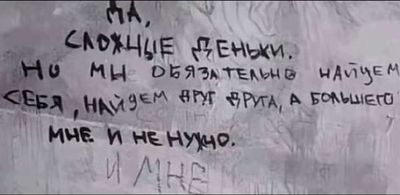 ДА,
СЛОЖНЫЕ ДЕНЬКИ.
НО МЫ ОБЯЗАТЕЛЬНО НАЙДЕМ
СЕБЯ, НАЙДЕМ ДРУГ ДРУГА, А БОЛЬШЕГО
МНЕ И НЕ НУЖНО.
И МНЕ